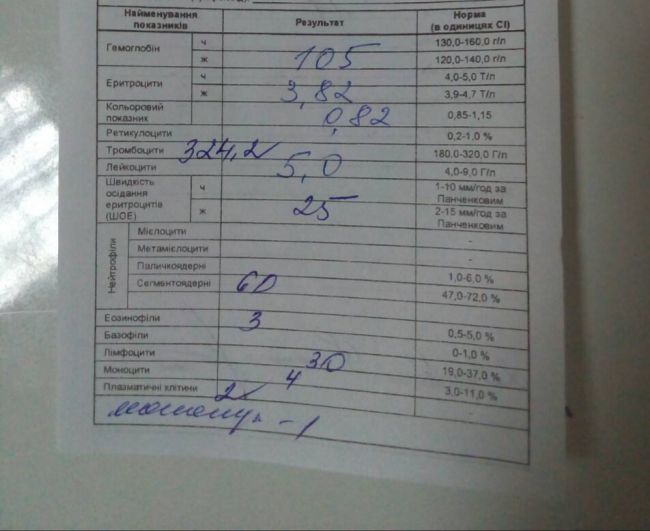 Найменування показників Результат Норма (в одиницях СІ)
Гемоглобін ч 130,0-160,0 г/л
ж 105 120,0-140,0 г/л
Еритроцити ч 4,0-5,0 Т/л
ж 3,82 3,9-4,7 Т/л
Кольоровий показник 0,82 0,85-1,15
Ретикулоцити 0,2-1,0 %
Тромбоцити 324,2 180,0-320,0 Г/л
Лейкоцити 5,0 4,0-9,0 Г/л
Швидкість осідання еритроцитів (ШОЕ) ч 1-10 мм/год за Панченковим
ж 25 2-15 мм/год за Панченковим
Нейтрофіли Мієлоцити -
Метамієлоцити -
Паличкоядерні 1,0-6,0 %
Сегментоядерні 60 47,0-72,0 %
Еозинофіли 3 0,5-5,0 %
Базофіли 0-1,0 %
Лімфоцити 30 19,0-37,0 %
Моноцити 4 3,0-11,0 %
Плазматичні клітини 2 -
-1